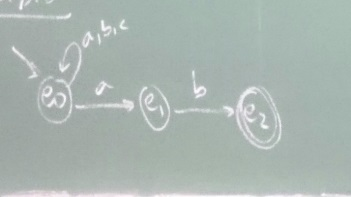 a,b,c
e0 a e1 b e2